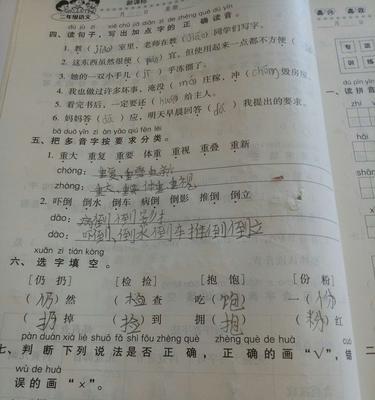 新课标
二年级语文
dú jù zǐ xiě chū jiā diǎn zì de zhèng què dú yīn
四、读句子，写出加点字的正确读音。
1. 教（jiào）室里，老师在教（jiāo）同学们写字。
2. 这东西虽然很便（）宜，但使用起来一点都不方便（
3. 她的一双小手几（jī）乎冻僵了。
4. 我也做过许多坏事，淹没（mò）庄稼，冲（chōng）毁房屋。
5. 着完书后，一定要还（huán）给主人。
6. 妈妈答（dā）应，明天早晨回答（dá）我提出的要求。
bǎ duō yīn zì àn yāo qiú fēn lèi
五、把多音字按要求分类。
1. 重大 重复 重要 体重 重视 重叠 重新
chóng：重复、重叠、重新
zhòng：重大、重要、体重、重视
2. 吓倒 倒水 倒车 病倒 倒影 推倒 倒立
dǎo：病倒
dào：
xuǎn zì tián kòng
六、选字填空。
［仍 扔］ ［检 捡］ ［抱 饱］ ［份 粉］
（仍）然 （检）查 吃（饱） 一（份）
（扔）掉 （捡）到 拥（抱） （粉）红
pàn duàn xià liè shuō fǎ shì fǒu zhèng què zhèng què de huà
七、判断下列说法是否正确，正确的画“√”，错
wù de huà
误的画“×”。